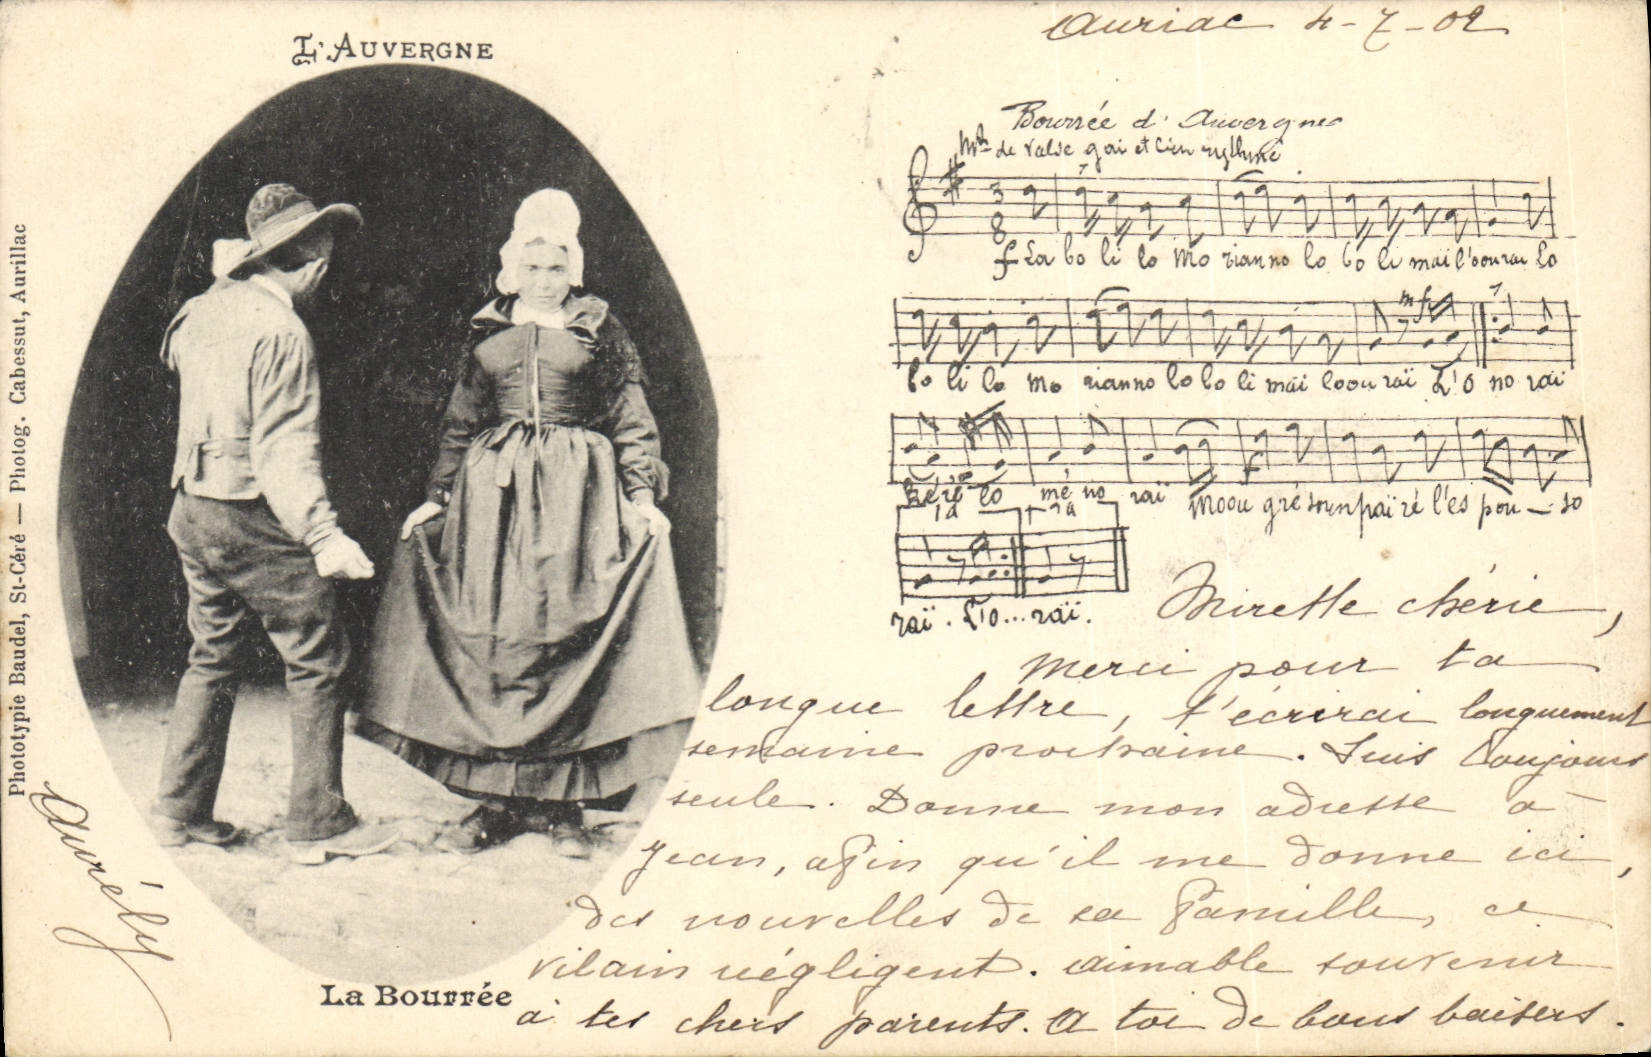 L'AUVERGNE
Auriac 4-7-02
Bourrée d'Auvergne
Mt de Valse gai et bien rythmé
f La bo li lo Mo rianno lo bo li mai l'oourai Lo
mf
bo li lo mo rianno lo bo li mai loou raï L'O no raï
Ré ré lo mé no raï Moou gré soun païré l'es pou - so
1a 2a
raï. L'O... raï.
Mirette chérie,
Merci pour ta
longue lettre, t'écrirai longuement
semaine prochaine. Suis toujours
seule. Donne mon adresse à
Jean, afin qu'il me donne ici,
des nouvelles de sa famille, ce
vilain négligent. Aimable souvenir
à tes chers parents. A toi de bons baisers.
Aurély
La Bourrée
Phototypie Baudel, St-Céré — Photog. Cabessut, Aurillac